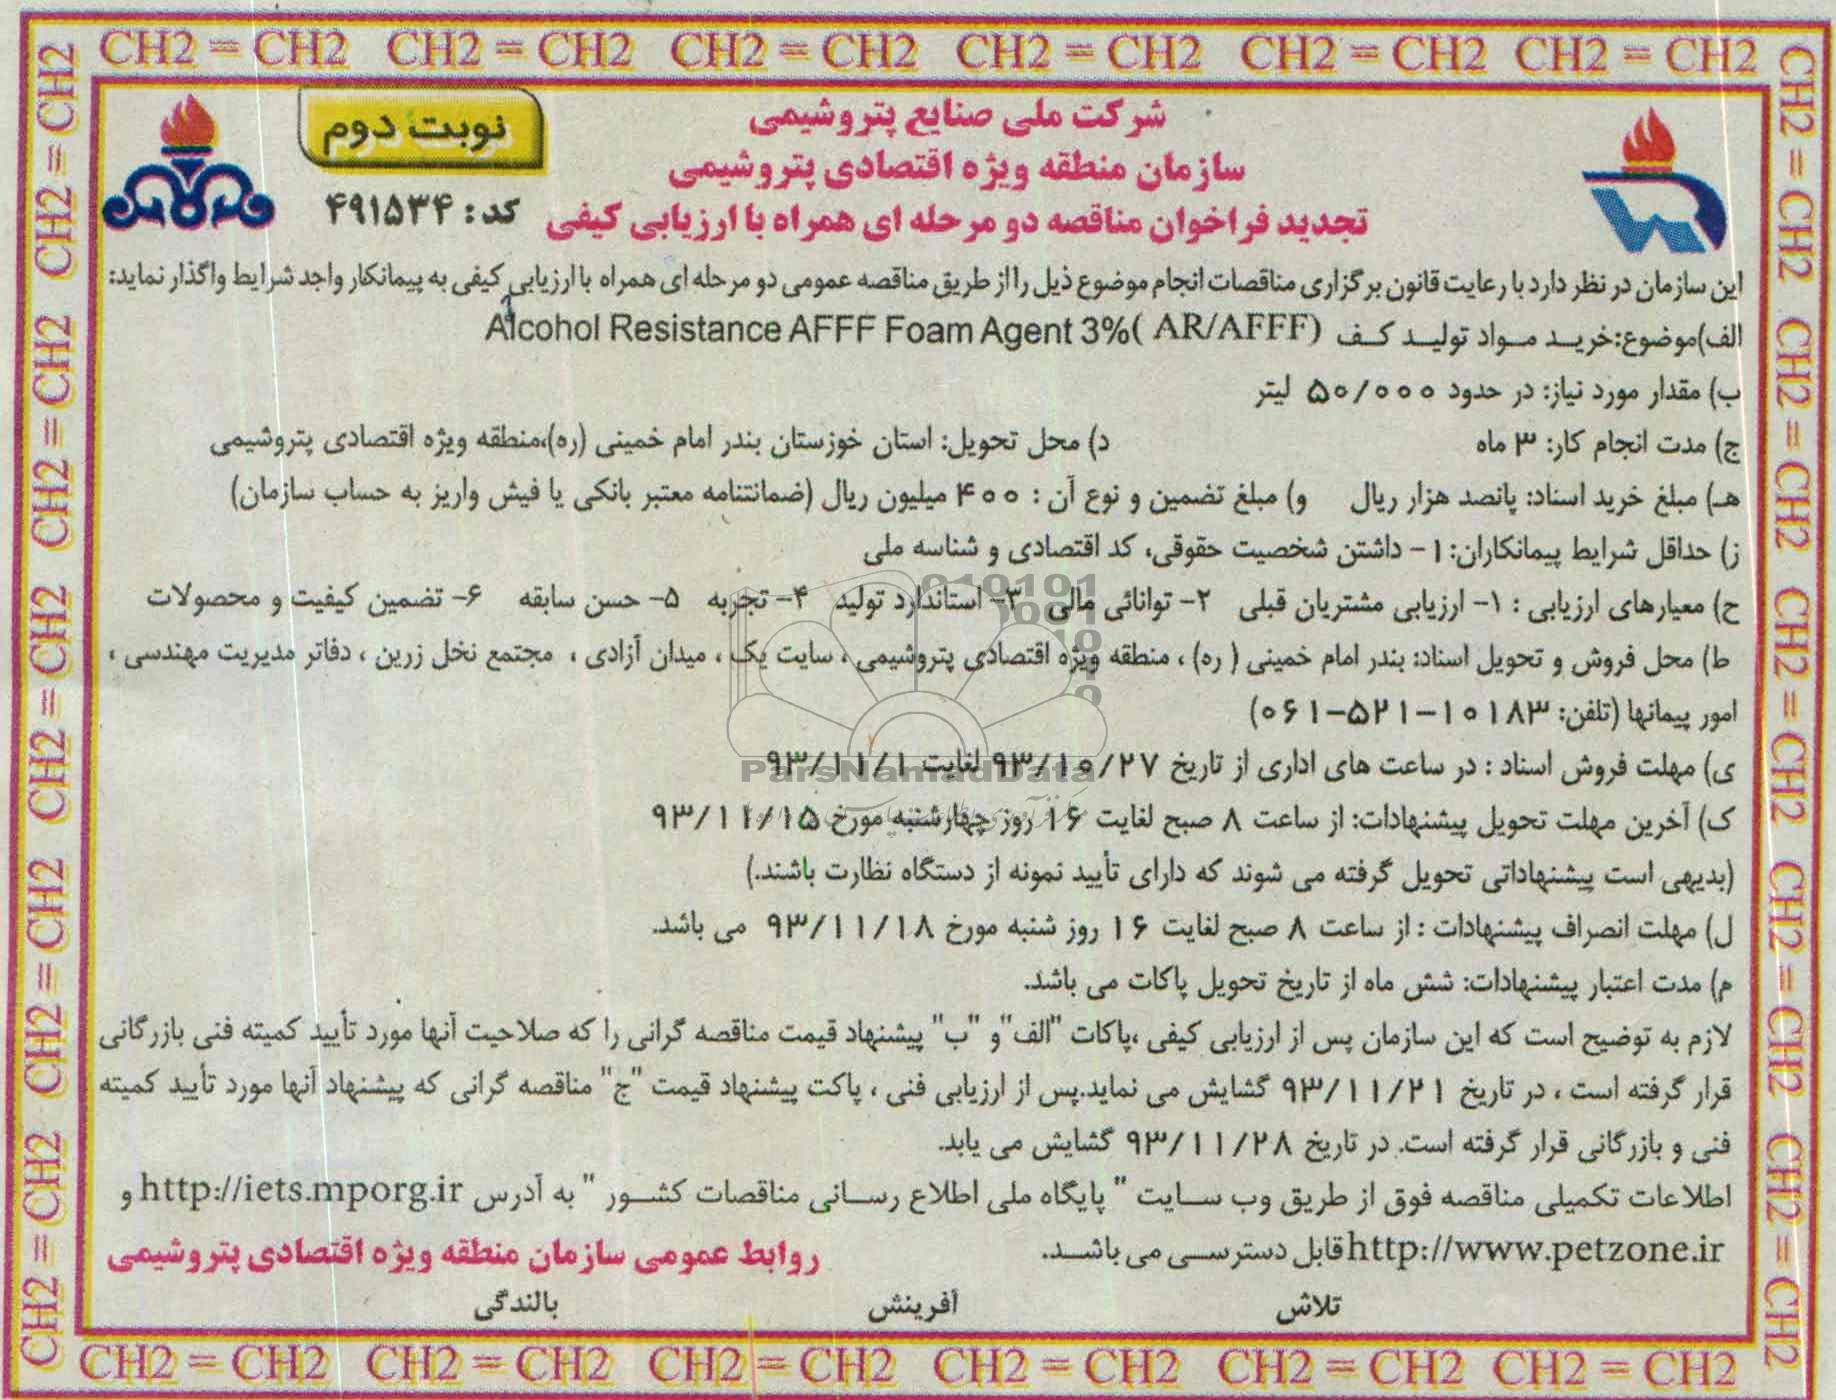 CH2 = CH2 CH2 = CH2 CH2 = CH2 CH2 = CH2 CH2 = CH2 CH2 = CH2
شرکت ملی صنایع پتروشیمی
نوبت دوم
سازمان منطقه ویژه اقتصادی پتروشیمی
تجدید فراخوان مناقصه دو مرحله ای همراه با ارزیابی کیفی کد: ۴۹۱۵۳۴
این سازمان در نظر دارد با رعایت قانون برگزاری مناقصات انجام موضوع ذیل را از طریق مناقصه عمومی دو مرحله ای همراه با ارزیابی کیفی به پیمانکار واجد شرایط واگذار نماید:
الف)موضوع:خرید مواد تولید کف Alcohol Resistance AFFF Foam Agent 3%( AR/AFFF)
ب) مقدار مورد نیاز: در حدود ۵۰/۰۰۰ لیتر
ج) مدت انجام کار: ۳ ماه د) محل تحویل: استان خوزستان بندر امام خمینی (ره)،منطقه ویژه اقتصادی پتروشیمی
هـ) مبلغ خرید اسناد: پانصد هزار ریال و) مبلغ تضمین و نوع آن : ۴۰۰ میلیون ریال (ضمانتنامه معتبر بانکی یا فیش واریز به حساب سازمان)
ز) حداقل شرایط پیمانکاران: ۱- داشتن شخصیت حقوقی، کد اقتصادی و شناسه ملی
ح) معیارهای ارزیابی : ۱- ارزیابی مشتریان قبلی ۲- توانائی مالی ۳- استاندارد تولید ۴- تجربه ۵- حسن سابقه ۶- تضمین کیفیت و محصولات
ط) محل فروش و تحویل اسناد: بندر امام خمینی ( ره) ، منطقه ویژه اقتصادی پتروشیمی ، سایت یک ، میدان آزادی ، مجتمع نخل زرین ، دفاتر مدیریت مهندسی ،
امور پیمانها (تلفن: ۱۰۱۸۳-۵۲۱-۰۶۱)
ی) مهلت فروش اسناد : در ساعت های اداری از تاریخ ۹۳/۱۰/۲۷ لغایت ۹۳/۱۱/۱
ParsNamadData
ک) آخرین مهلت تحویل پیشنهادات: از ساعت ۸ صبح لغایت ۱۶ روز چهارشنبه مورخ ۹۳/۱۱/۱۵
(بدیهی است پیشنهاداتی تحویل گرفته می شوند که دارای تأیید نمونه از دستگاه نظارت باشند.)
ل) مهلت انصراف پیشنهادات : از ساعت ۸ صبح لغایت ۱۶ روز شنبه مورخ ۹۳/۱۱/۱۸ می باشد.
م) مدت اعتبار پیشنهادات: شش ماه از تاریخ تحویل پاکات می باشد.
لازم به توضیح است که این سازمان پس از ارزیابی کیفی ،پاکات "الف"و "ب" پیشنهاد قیمت مناقصه گرانی را که صلاحیت آنها مورد تأیید کمیته فنی بازرگانی
قرار گرفته است ، در تاریخ ۹۳/۱۱/۲۱ گشایش می نماید.پس از ارزیابی فنی ، پاکت پیشنهاد قیمت "ج" مناقصه گرانی که پیشنهاد آنها مورد تأیید کمیته
فنی و بازرگانی قرار گرفته است. در تاریخ ۹۳/۱۱/۲۸ گشایش می یابد.
اطلاعات تکمیلی مناقصه فوق از طریق وب سایت " پایگاه ملی اطلاع رسانی مناقصات کشور " به آدرس http://iets.mporg.ir و
http://www.petzone.ir قابل دسترسی می باشد.
روابط عمومی سازمان منطقه ویژه اقتصادی پتروشیمی
تلاش آفرینش بالندگی
CH2 = CH2 CH2 = CH2 CH2 = CH2 CH2 = CH2 CH2 = CH2 CH2 = CH2
CH2 = CH2 CH2 = CH2 CH2 = CH2 CH2 = CH2 CH2 = CH2
CH2 = CH2 CH2 = CH2 CH2 = CH2 CH2 = CH2 CH2 = CH2